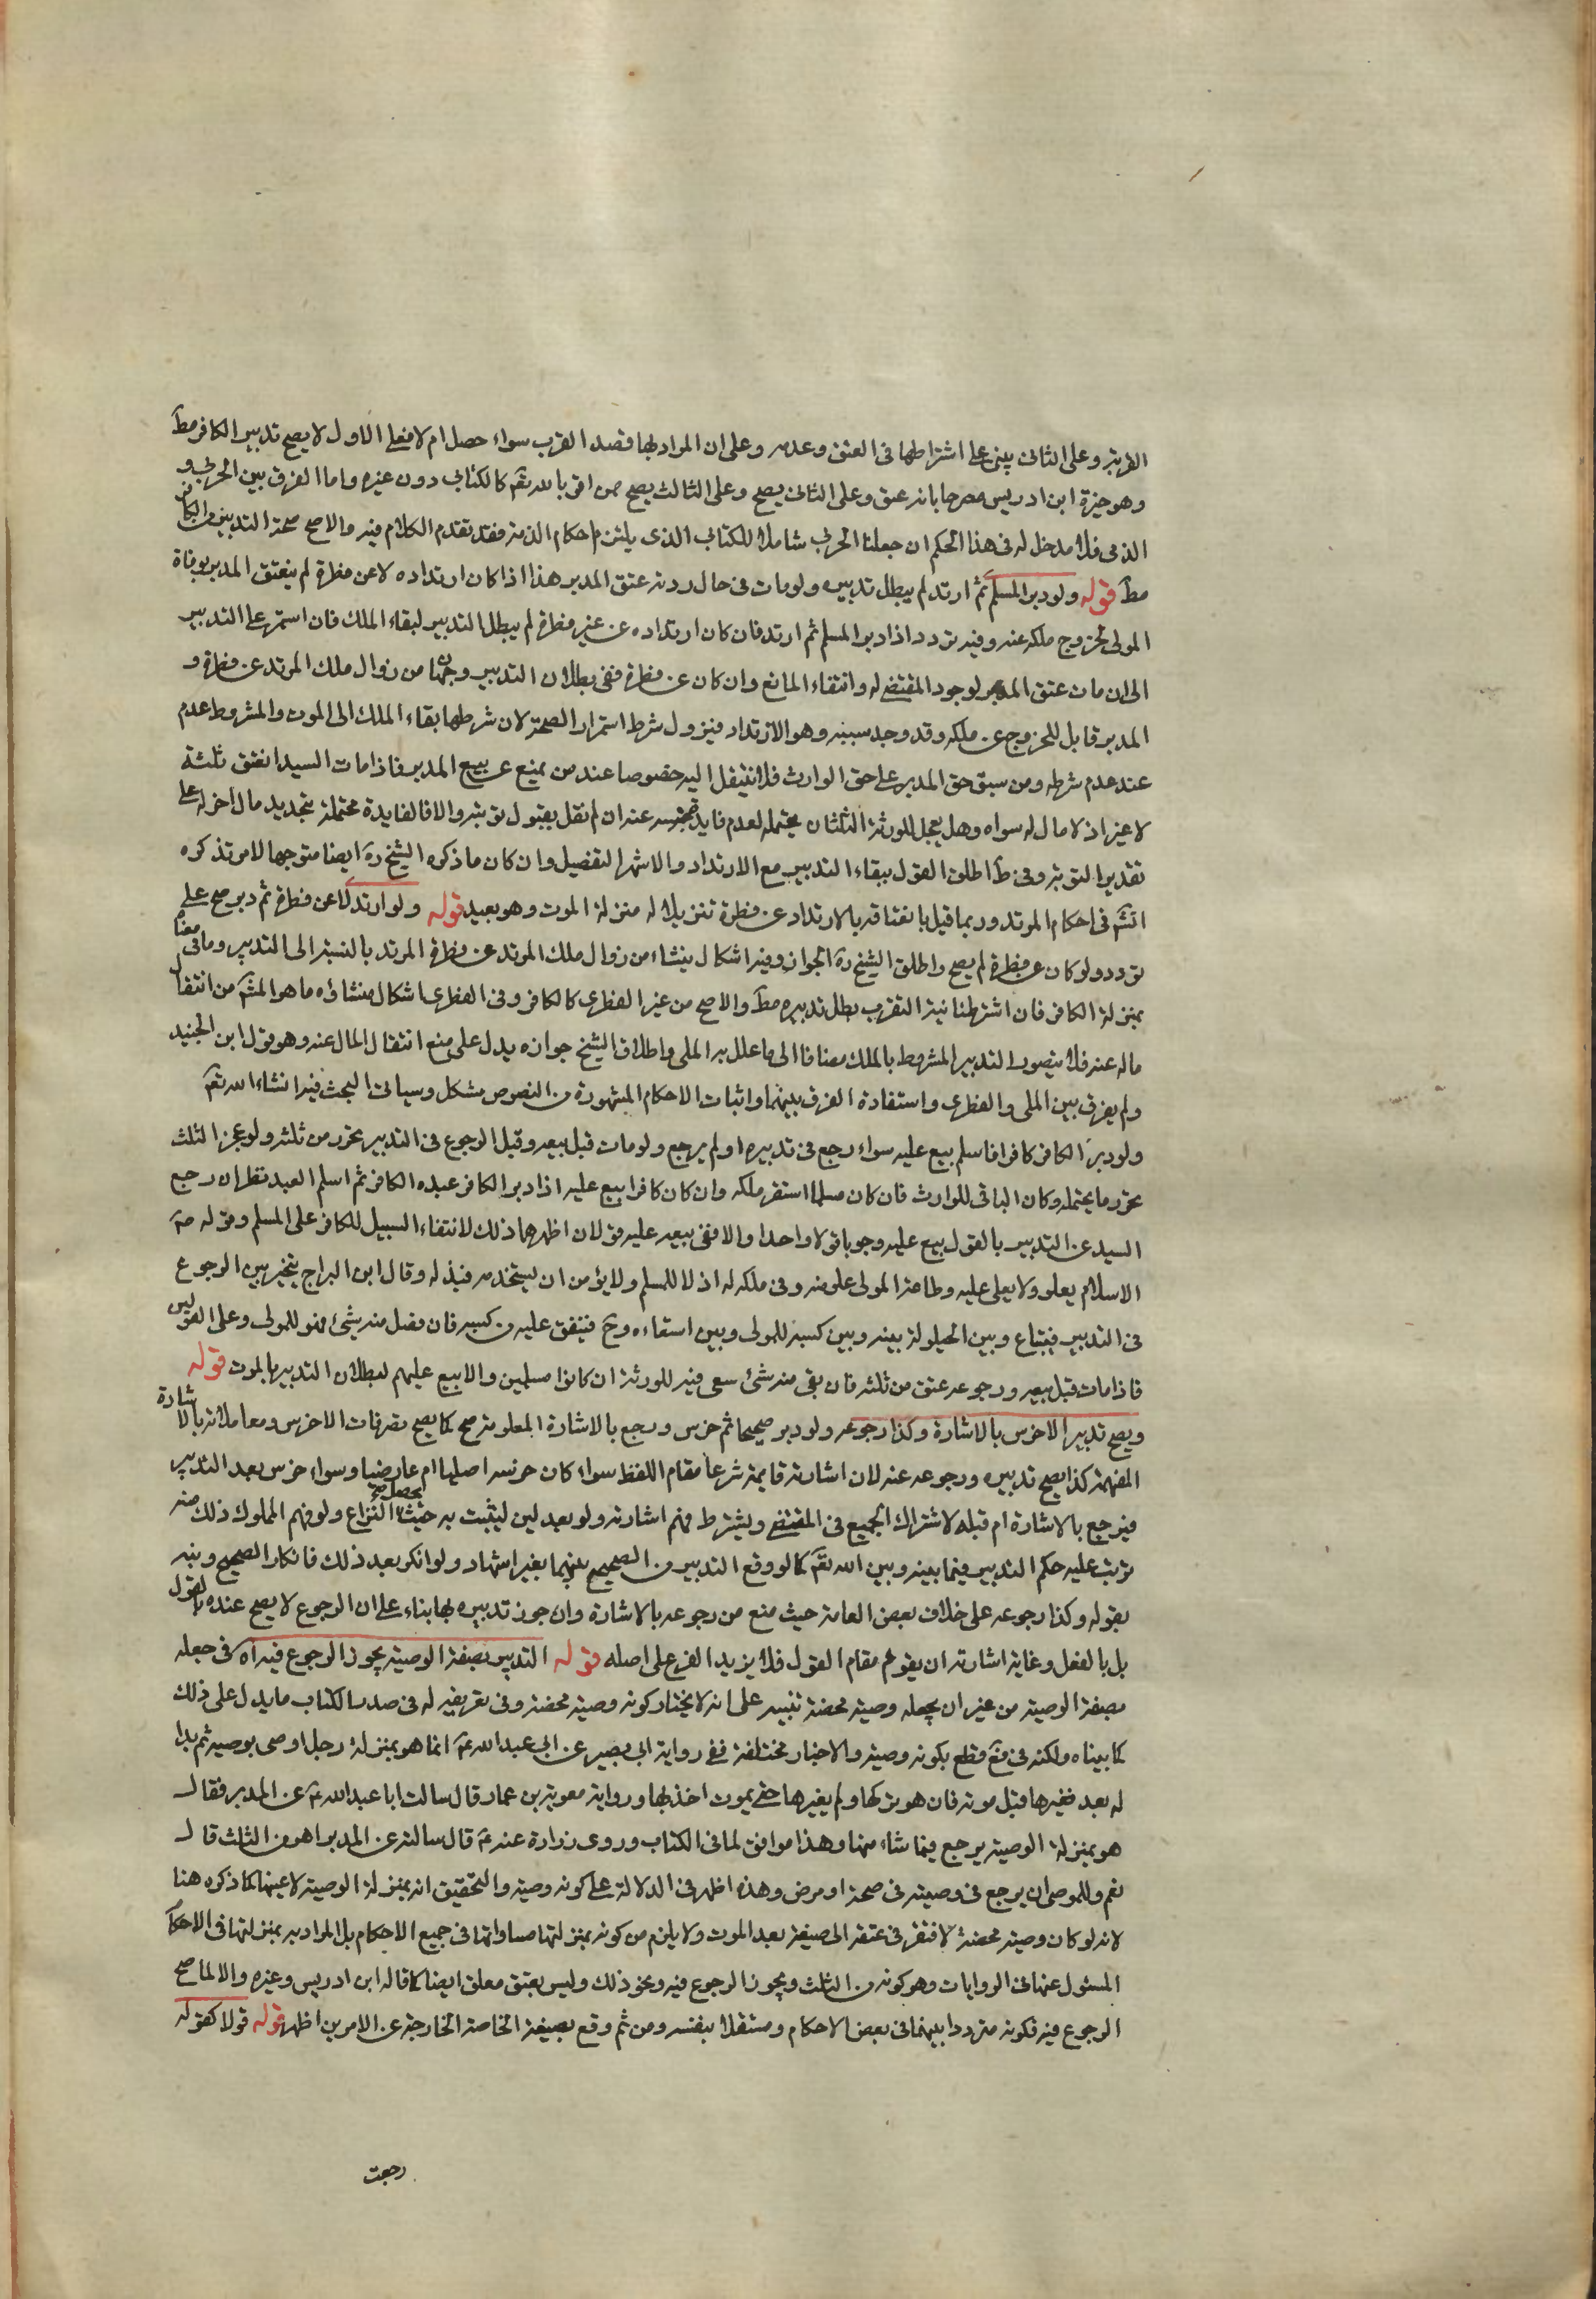 القربة وعلى الثانى يبنى على اشتراطها فى العتق وعدمه وعلى ان المراد بها قصد القرب سواء حصل ام لا فعلى الاول لا يصح تدبير الكافر مط
وهو خيرة ابن ادريس مصرحا بانه عتق وعلى الثانى يصح وعلى الثالث يصح ممن اقر بالله تعم كالكتابى دون غيره واما الفرق بين الحربى و
الذمى فلا مدخل له فى هذا الحكم ان جعلنا الحربى شاملا للكتابى الذى يلتزم احكام الذمة فقد تقدم الكلام فيه والاصح صحة التدبير من الكافر
مط قوله ولو دبر المسلم ثم ارتد لم يبطل تدبيره ولو مات فى حال ردته عتق المدبر هذا اذا كان ارتداده لا عن فطرة لم ينعتق المدبر بوفاة
المولى لخروج ملكه عنه وفيه تردد اذا دبر المسلم ثم ارتد فان كان ارتداده عن غير فطرة لم يبطل التدبير لبقاء الملك فان استمر على التدبير
الى ان مات عتق المدبر لوجود المقتضى له وانتفاء المانع وان كان عن فطرة ففى بطلان التدبير وجهان من زوال ملك المرتد عن فطرة و
المدبر قابل للخروج عن ملكه وقد وجد سببه وهو الارتداد فيزول شرط استمرار الصحة لان شرطها بقاء الملك الى الموت والمشروط عدم
عند عدم شرطه ومن سبق حق المدبر على حق الوارث فلا ينتقل اليه خصوصا عند من يمنع عن بيع المدبر فاذا مات السيد انعتق ثلثه
لا غير اذ لا مال له سواه وهل يعجل للورثة الثلثان يحتمله لعدم فايدة حبسه عنه ان لم نقل بقبول توبته والا فالفايدة محتملة بتجديد مال اخر له على
تقدير التوبة وفى ط اطلق القول ببقاء التدبير مع الارتداد والاشهر التفصيل وان كان ما ذكره الشيخ ره ايضا متوجها لامر تذكره
انشم فى احكام المرتد وربما قيل بانعتاقه بالارتداد عن فطرة تنزيلا له منزلة الموت وهو بعيد قوله ولو ارتد لا عن فطرة ثم دبر صح على
تردد ولو كان عن فطرة لم يصح واطلق الشيخ ره الجواز وفيه اشكال ينشاء من زوال ملك المرتد عن فطرة المرتد بالنسبة الى التدبير وما فى معناه
بمنزلة الكافر فان اشترطنا نية التقرب بطل تدبيره مط والاصح من غير الفطرى كالكافر وفى الفطرى اشكال منشاؤه ما هو المشم من انتقال
ماله عنه فلا يتصور التدبير المشروط بالملك مضافا الى ما علل به الملى واطلاق الشيخ جوازه يدل على منع انتقال المال عنه وهو قول ابن الجنيد
ولم يفرق بين الملى والفطرى واستفادة الفرق بينهما واثبات الاحكام المشهورة من النصوص مشكل وسياتى البحث فيه انشاء الله تعم
ولو دبر الكافر كافرا فاسلم بيع عليه سواء رجع فى تدبيره او لم يرجع ولو مات قبل بيعه وقبل الرجوع فى التدبير تحرر من ثلثه ولو عجز الثلث
تحرر ما يحتمله وكان الباقى للوارث فان كان مسلما استقر ملكه وان كان كافرا بيع عليه اذا دبر الكافر عبده الكافر ثم اسلم العبد نظر ان رجع
السيد عن التدبير بالقول بيع عليه وجوبا قولا واحدا والا ففى بيعه عليه قولان اظهرهما ذلك لانتفاء السبيل للكافر على المسلم وقوله صم
الاسلام يعلو ولا يعلى عليه وطاعة المولى علو منه وفى ملكه له اذلال للمسلم ولا يؤمن ان يستخدمه فيذله وقال ابن البراج يتخير بين الرجوع
فى التدبير فيتباع وبين الحيلولة بينه وبين كسبه للمولى وبين استقاءه وح فينفق عليه من كسبه فان فضل منه شئ فهو للمولى وعلى القولين
فاذا مات قبل بيعه ورجوعه عتق من ثلثه فان بقى منه شئ سعى فيه للورثة ان كانوا مسلمين والا بيع عليهم لبطلان التدبير بالموت قوله
ويصح تدبير الاخرس بالاشارة وكذا رجوعه ولو دبر صحيحا ثم خرس ورجع بالاشارة المعلومة صح كما يصح تصرفات الاخرس ومعاملاته بالاشارة
المفهمة كذا يصح تدبيره ورجوعه عنه لان اشارته قايمة شرعا مقام اللفظ سواء كان خرسه اصليا ام عارضيا وسواء خرس بعد التدبير
فيرجع بالاشارة ام قبله لاشتراك الجميع فى المقتضى ويشترط فهم اشارته ولو بعدلين ليثبت به حيث يحصل النزاع ولو فهم المملوك ذلك منه
ترتب عليه حكم التدبير فيما بينه وبين الله تعم كما لو وقع التدبير من الصحيح بينهما بغير اشهاد ولو انكر بعد ذلك فانكار الصحيح ونبه
بقوله وكذا رجوعه على خلاف بعض العامة حيث منع من رجوعه بالاشارة وان جوز تدبيره بها بناء على ان الرجوع لا يصح عنده بالقول
بل بالفعل وغاية اشارته ان يقوم مقام القول فلا يزيد الفرع على اصله قوله التدبير بصفة الوصية يجوز الرجوع فيه اه فى جعله
بصفة الوصية من غير ان يجعله وصية محضة تنبيه على انه لا يختار كونه وصية محضة وفى تعريفه له فى صدر الكتاب ما يدل على ذلك
كما بيناه ولكنه فى فع قطع بكونه وصية والاخبار مختلفة ففى رواية ابى بصير عن ابى عبد الله عم انما هو بمنزلة رجل اوصى بوصية ثم بدا
له بعد فغيرها قبل موته فان هو تركها ولم يغيرها حتى يموت اخذ بها ورواية معوية بن عمار قال سالت ابا عبد الله عم عن المدبر فقال
هو بمنزلة الوصية يرجع فيما شاء منها وهذا موافق لما فى الكتاب وروى زرارة عنه عم قال سالته عن المدبر اهو من الثلث قال
نعم وللموصى ان يرجع فى وصيته فى صحة او مرض وهذه اظهر فى الدلالة على كونه وصية والتحقيق انه بمنزلة الوصية لا عينها كما ذكره هنا
لانه لو كان وصية محضة لافتقر فى عتقه الى صيغة بعد الموت ولا يلزم من كونه بمنزلتها مساواتها فى جميع الاحكام بل المراد به بمنزلتها فى الاحكام
المسئول عنها فى الروايات وهو كونه من الثلث ويجوز الرجوع فيه ونحو ذلك وليس بعتق معلق ايضا كما قاله ابن ادريس وغيره والا لما صح
الرجوع فيه فكونه مترددا بينهما فى بعض الاحكام ومستقلا بنفسه ومن ثم وقع بصيغة الخاصة الخارجة عن الامرين اظهر قوله قولا كقوله
رجعت